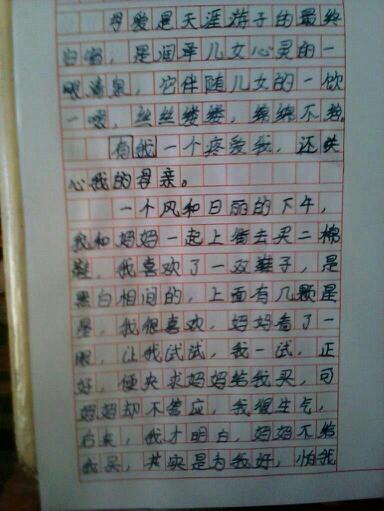 母爱是天涯游子的最终
归宿，是润泽儿女心灵的一
眼清泉，它伴随儿女的一饮
一啜，丝丝缕缕，绵绵不绝。
有我一个疼爱我，还关
心我的母亲。
一个风和日丽的下午，
我和妈妈一起上街去买二棉
鞋，我喜欢了一双鞋子，是
黑白相间的，上面有几颗星
星，我很喜欢，妈妈看了一
眼，让我试试，我一试，正
好，便央求妈妈给我买，可
妈妈却不答应，我很生气，
后来，我才明白，妈妈不给
我买，其实是为我好，怕我